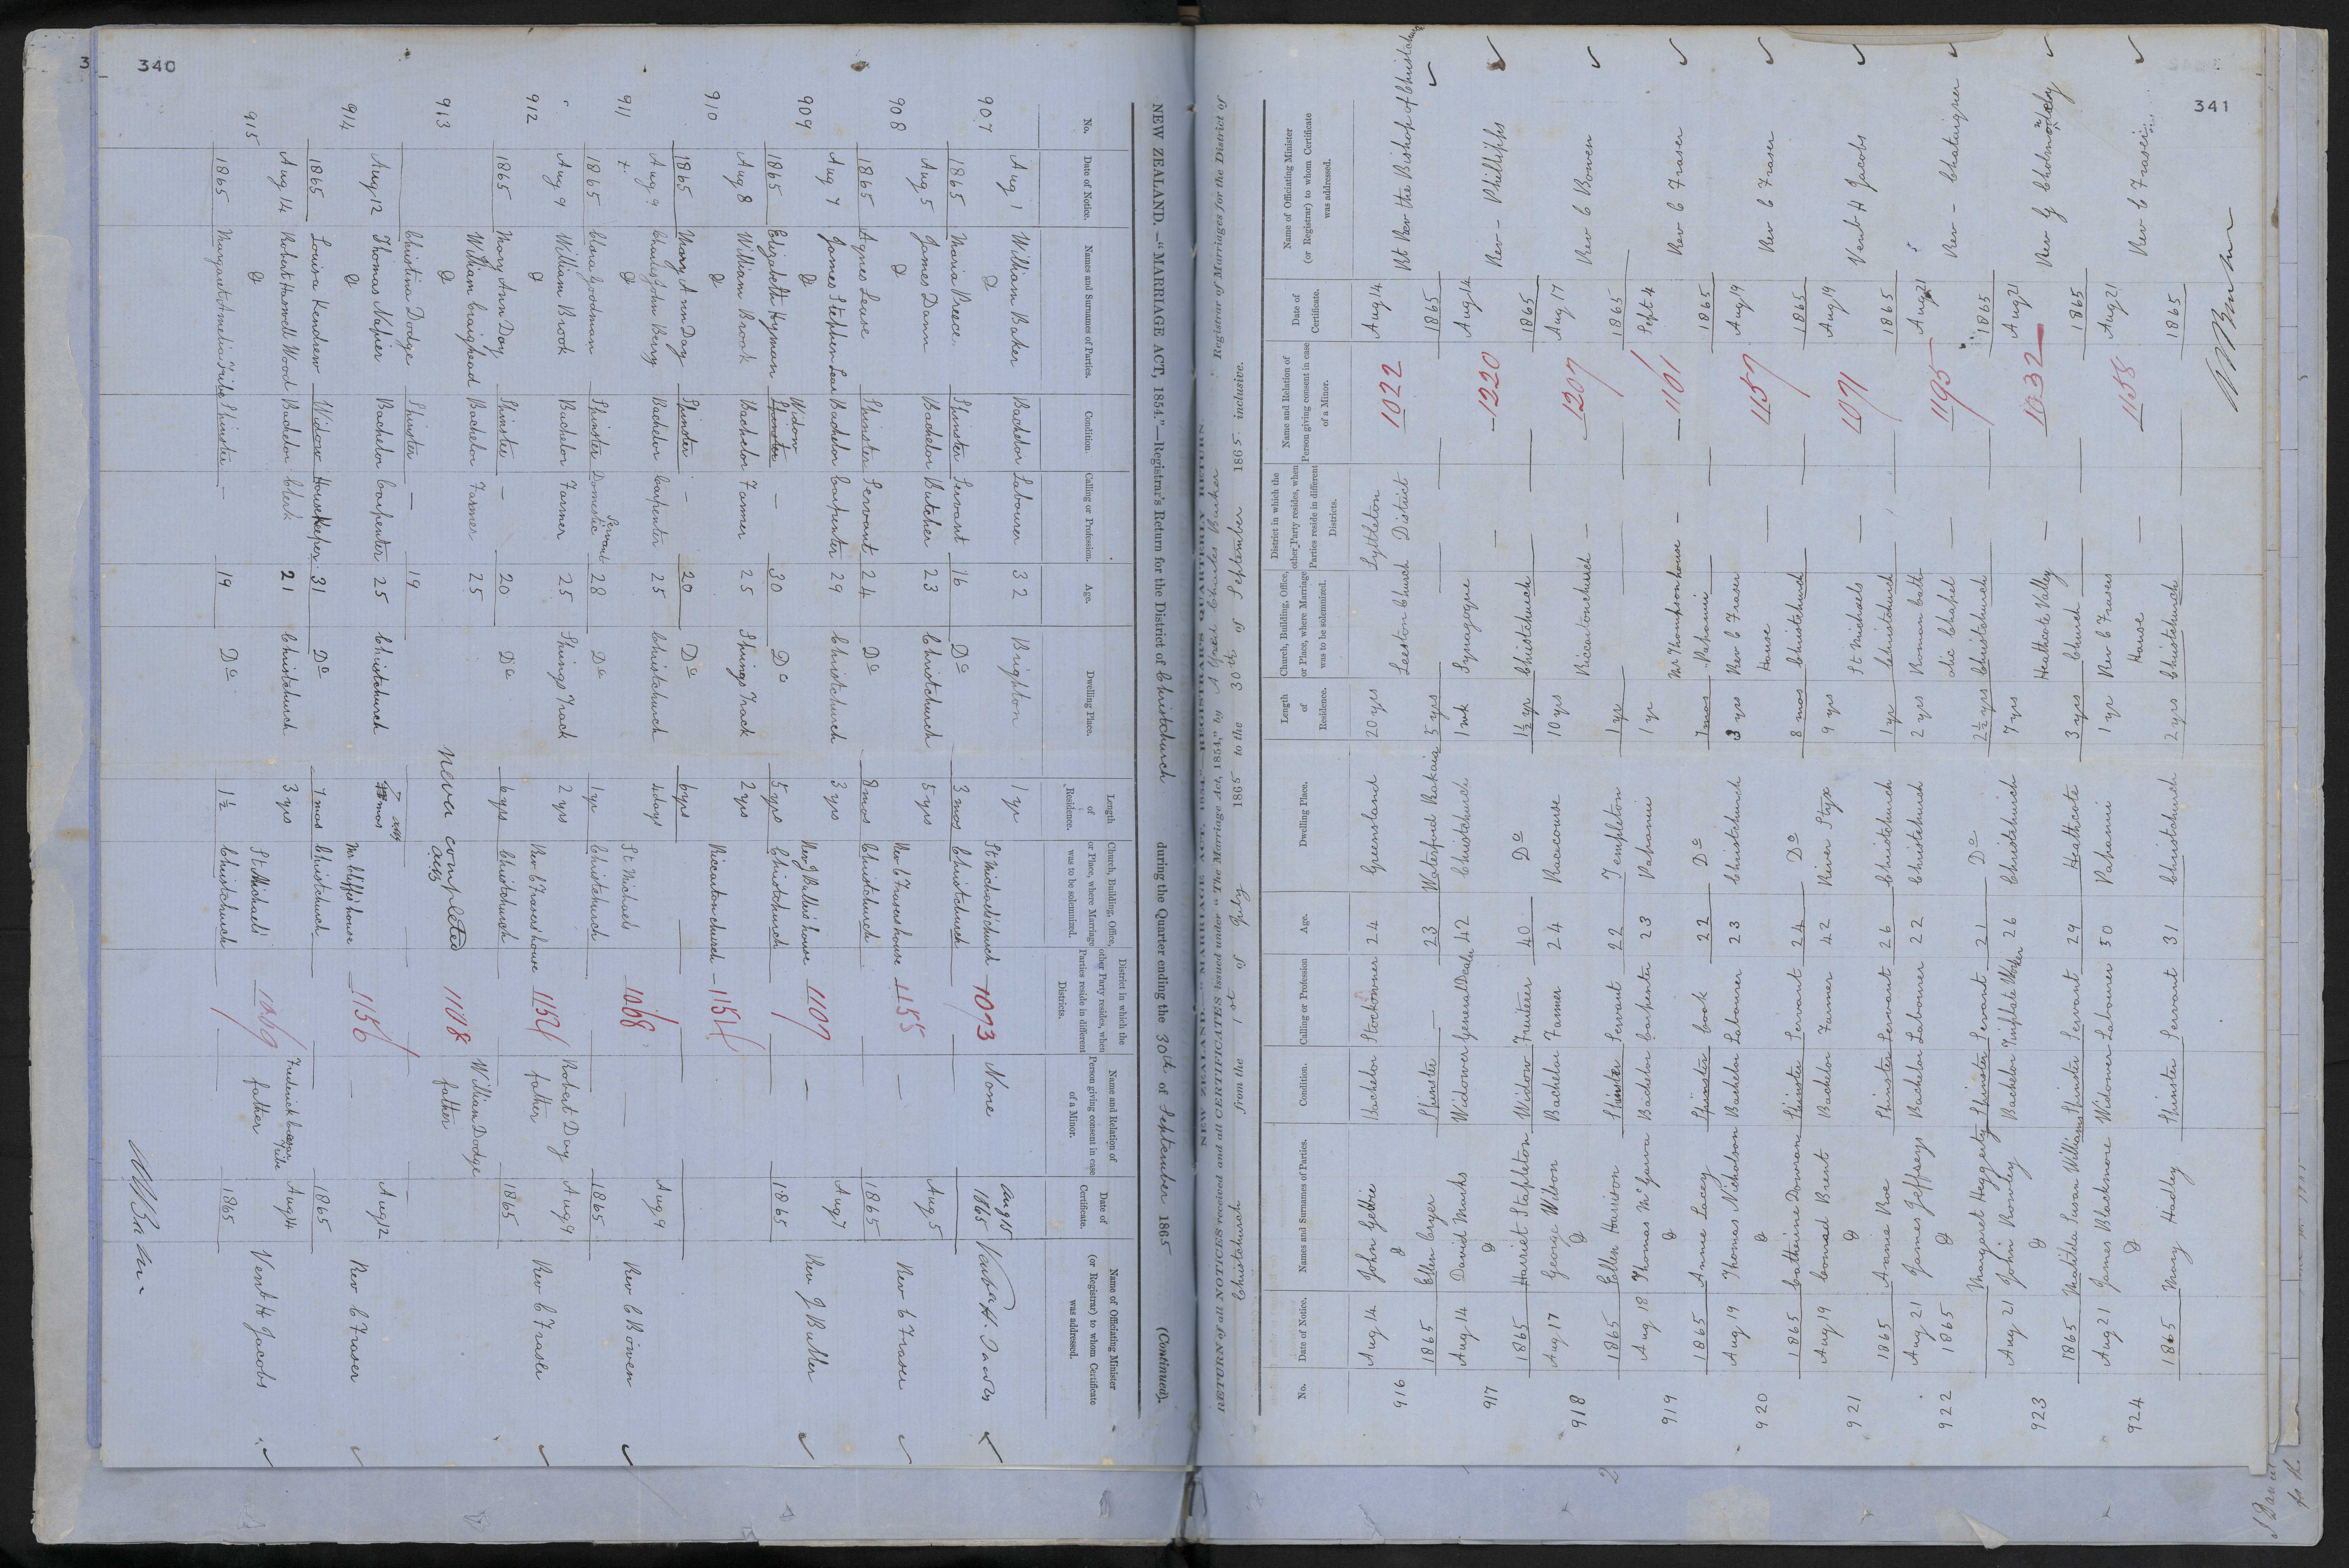 340
NEW ZEALAND.—"MARRIAGE ACT, 1854."—Registrar's Return for the District of Christchurch during the Quarter ending the 30th of September 1865 (Continued).
No. Date of Notice. Names and Surnames of Parties. Condition. Calling or Profession. Age. Dwelling Place. Length of Residence. Church, Building, Office, or Place, where Marriage was to be solemnized. District in which the other Party resides, when Parties reside in different Districts. Name and Relation of Person giving consent in case of a Minor. Date of Certificate. Name of Officiating Minister (or Registrar) to whom Certificate was addressed.
907 Aug 1 William Baker Bachelor Labourer 32 Brighton 1 yr St Michaels church 1073 None Aug 15
&
1865 Maria Preece Spinster Servant 16 Do 3 mos Christchurch 1865
908 Aug 5 James Dann Bachelor Butcher 23 Christchurch 5 yrs Rev C Frasers house 1155 — Aug 5 Rev C Fraser
&
1865 Agnes Lease Spinster Servant 24 Do 8 mos Christchurch 1865
909 Aug 7 James Stephen Lear Bachelor Carpenter 29 Christchurch 3 yrs Rev J Bullers house 1107 — Aug 7 Rev J Buller
&
Widow
1865 Elizabeth Hyman Spinster — 30 Do 5 yrs Christchurch 1865
910 Aug 8 William Brook Bachelor Farmer 25 Springs Track 2 yrs Riccarton church 1151
&
1865 Mary Ann Day Spinster — 20 Do 6 yrs
911 Aug 9 Charles John Berry Bachelor Carpenter 25 Christchurch 4 days St Michaels 1068 — Aug 9 Rev C Bowen
&
1865 Clara Goodman Spinster Domestic Servant 28 Do 1 yr Christchurch 1865
912 Aug 9 William Brook Bachelor Farmer 25 Springs Track 2 yrs Rev C Frasers house 1152 Robert Day father Aug 9 Rev C Fraser
&
1865 Mary Ann Day Spinster — 20 Do 6 yrs Christchurch 1865
913 William Craighead Bachelor Farmer 25 never completed 1108 William Dodge father
&
Christina Dodge Spinster — 19
914 Aug 12 Thomas Napier Bachelor Carpenter 25 Christchurch 7 mos Mr Cliffs house 1156 — Aug 12 Rev C Fraser
&
1865 Louisa Kendrew Widow Housekeeper 31 Do 7 mos Christchurch 1865
915 Aug 14 Robert Haswell Wood Bachelor Clerk 21 Christchurch 3 yrs St Michaels 1069 Frederick Tribe father Aug 14 Vent H Jacobs
&
1865 Margaret Amelia Tribe Spinster — 19 Do 1½ Christchurch 1865
341
NEW ZEALAND.—"MARRIAGE ACT, 1854."—REGISTRAR'S QUARTERLY RETURN
RETURN of all NOTICES received and all CERTIFICATES issued under "The Marriage Act, 1854," by A Gred Charles Barker Registrar of Marriages for the District of
Christchurch from the 1st of July 1865 to the 30th of September 1865 inclusive.
No. Date of Notice. Names and Surnames of Parties. Condition. Calling or Profession Age. Dwelling Place. Length of Residence. Church, Building, Office, or Place, where Marriage was to be solemnized. District in which the other Party resides, when Parties reside in different Districts. Name and Relation of Person giving consent in case of a Minor. Date of Certificate. Name of Officiating Minister (or Registrar) to whom Certificate was addressed.
916 Aug 14 John Gebbie Bachelor Stockowner 24 Greensland 20 yrs Leeston Church Lyttelton District 1022 Aug 14 Rt Rev the Bishop of Christchurch
&
1865 Ellen Cryer Spinster — 23 Waterford Rakaia 5 yrs 1865
917 Aug 14 David Marks Widower General Dealer 42 Christchurch 1 wk Synagogue — 1220 Aug 14 Rev — Phillipps
&
1865 Harriet Stapleton Widow Fruiterer 40 Do 1½ yr Christchurch 1865
918 Aug 17 George Wilson Bachelor Farmer 24 Racecourse 10 yrs Riccarton church — 1207 Aug 17 Rev C Bowen
&
1865 Ellen Harrison Spinster Servant 22 Templeton 1 yr 1865
919 Aug 18 Thomas McGarva Bachelor Carpenter 23 Papanui 1 yr Mr Thompsons house — 1161 Sept 4 Rev C Fraser
&
1865 Annie Lacey Spinster Cook 22 Do 7 mos Papanui 1865
920 Aug 19 Thomas Nicholson Bachelor Labourer 23 Christchurch 3 yrs Rev C Fraser House — 1157 Aug 19 Rev C Fraser
&
1865 Catherine Downane Spinster Servant 24 Do 8 mos Christchurch 1865
921 Aug 19 Conrad Brent Bachelor Farmer 42 River Styx 9 yrs St Michaels — 1071 Aug 19 Vent H Jacobs
&
1865 Annie Roe Spinster Servant 26 Christchurch 1 yr Christchurch 1865
922 Aug 21 James Jeffreys Bachelor Labourer 22 Christchurch 2 yrs Roman Catholic Chapel — 1195 Aug 21 Rev — Chataigner
1865 &
Margaret Heggerty Spinster Servant 21 Do 2½ yrs Christchurch 1865
923 Aug 21 John Rowley Bachelor Tinplate Worker 26 Christchurch 7 yrs Heathcote Valley — 1032 Aug 21 Rev G Cholmondeley
&
1865 Matilda Susan Williams Spinster Servant 29 Heathcote 3 yrs Church 1865
924 Aug 21 James Blackmore Widower Labourer 30 Papanui 1 yr Rev C Frasers House — 1158 Aug 21 Rev C Fraser
&
1865 Mary Hadley Spinster Servant 31 Christchurch 2 yrs Christchurch 1865